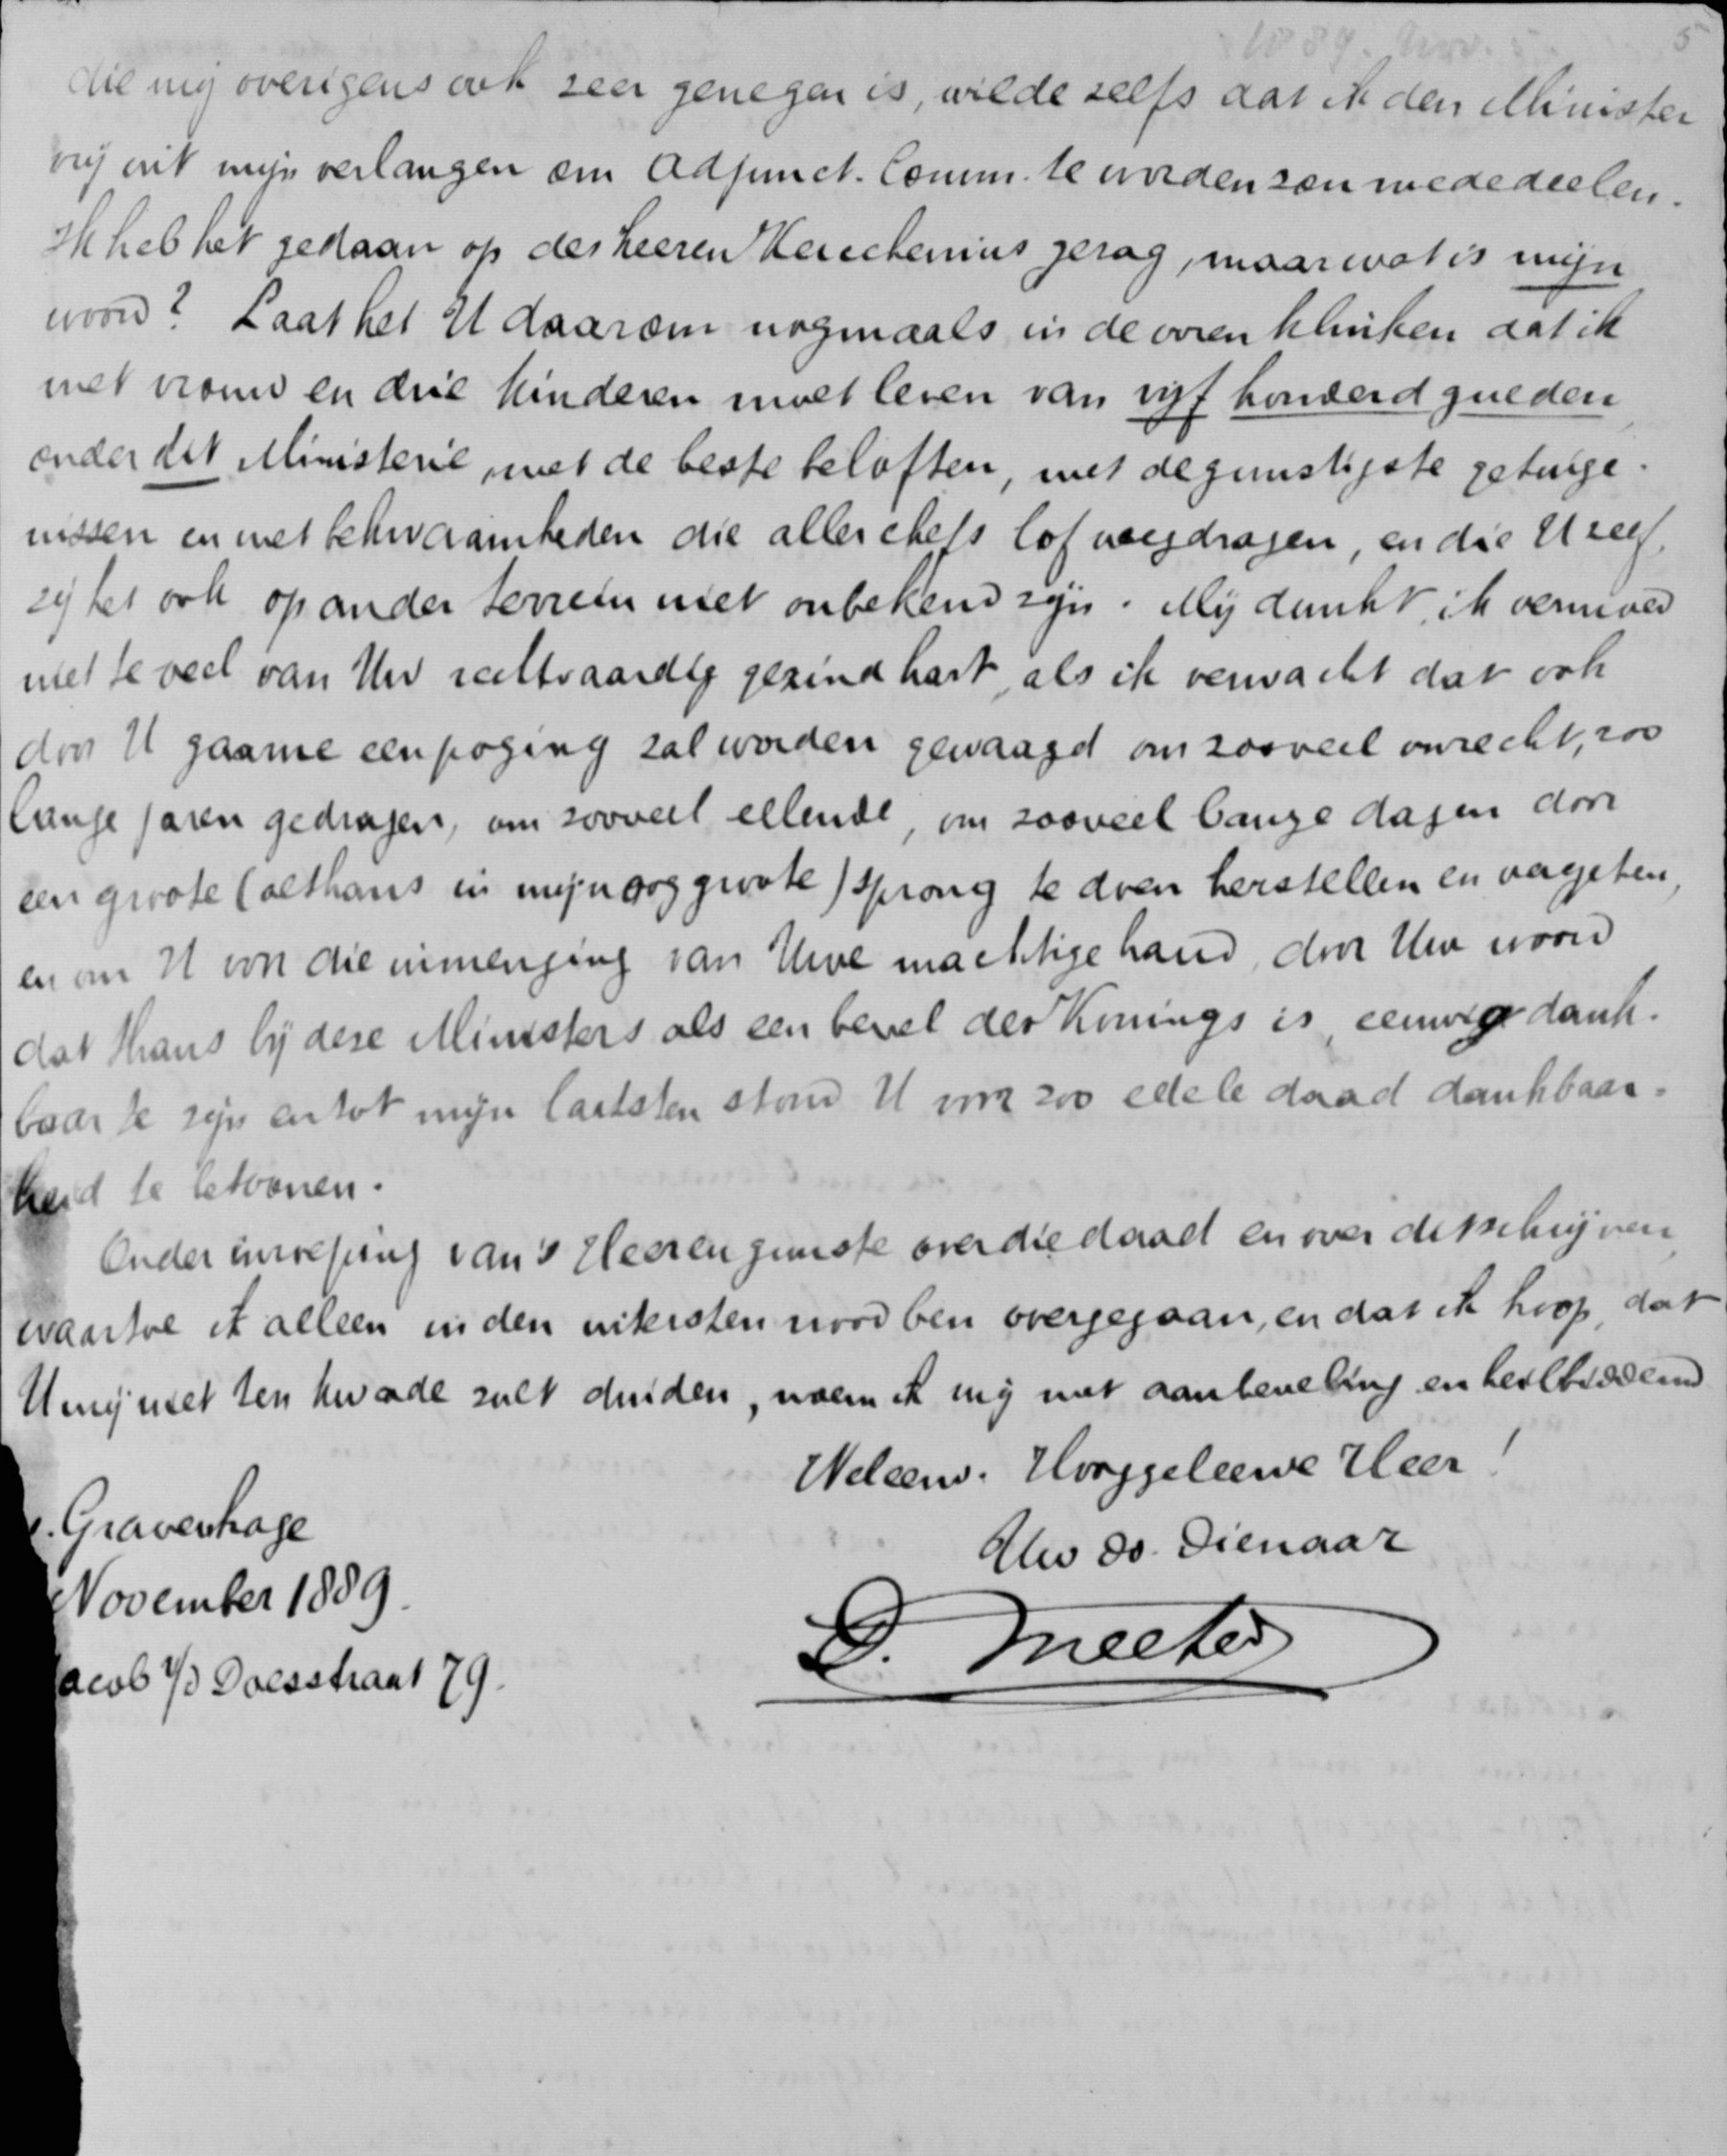 1889. Nov. 5.
5
die mij overigens ook zeer genegen is, wilde zelfs dat ik den Minister
vrij uit mijn verlangen om Adjunct. Comm. te worden zou mededeelen.
Ik heb het gedaan op des heeren Keuchenius gezag, maar wat is mijn
woord? Laat het U daarom nogmaals in de ooren klinken dat ik
met vrouw en drie kinderen moet leven van vijf honderd gulden,
onder dit Ministerie, met de beste beloften, met de gunstigste getuige-
nissen en met bekwaamheden die aller chefs lof wegdragen, en die U zelf,
zij het ook op ander terrein niet onbekend zijn. Mij dunkt, ik vermoed
niet te veel van Uw rechtvaardig gezind hart, als ik verwacht dat ook
door U gaarne een poging zal worden gewaagd om zooveel onrecht, zoo
lange jaren gedragen, om zooveel ellende, om zooveel bange dagen door
een groote (althans in mijn oog groote) sprong te doen herstellen en vergeten,
en om U voor die inmenging van Uwe machtige hand, door Uw woord
dat thans bij deze Ministers als een bevel des Konings is, eeuwig dank-
baar te zijn en tot mijn laatsten stond U voor zoo edele daad dankbaar-
heid te betoonen.
Onder inroeping van 's Heeren gunste over die daad en over dit schrijven,
waartoe ik alleen in den uitersten nood ben overgegaan, en dat ik hoop, dat
U mij niet ten kwade zult duiden, noem ik mij met aanbeveling en heilbiddend
Weleerw. Hooggeleerde Heer!
Uw do. Dienaar
D. Meeter
s. Gravenhage
November 1889.
acob v/d Doesstraat 79.